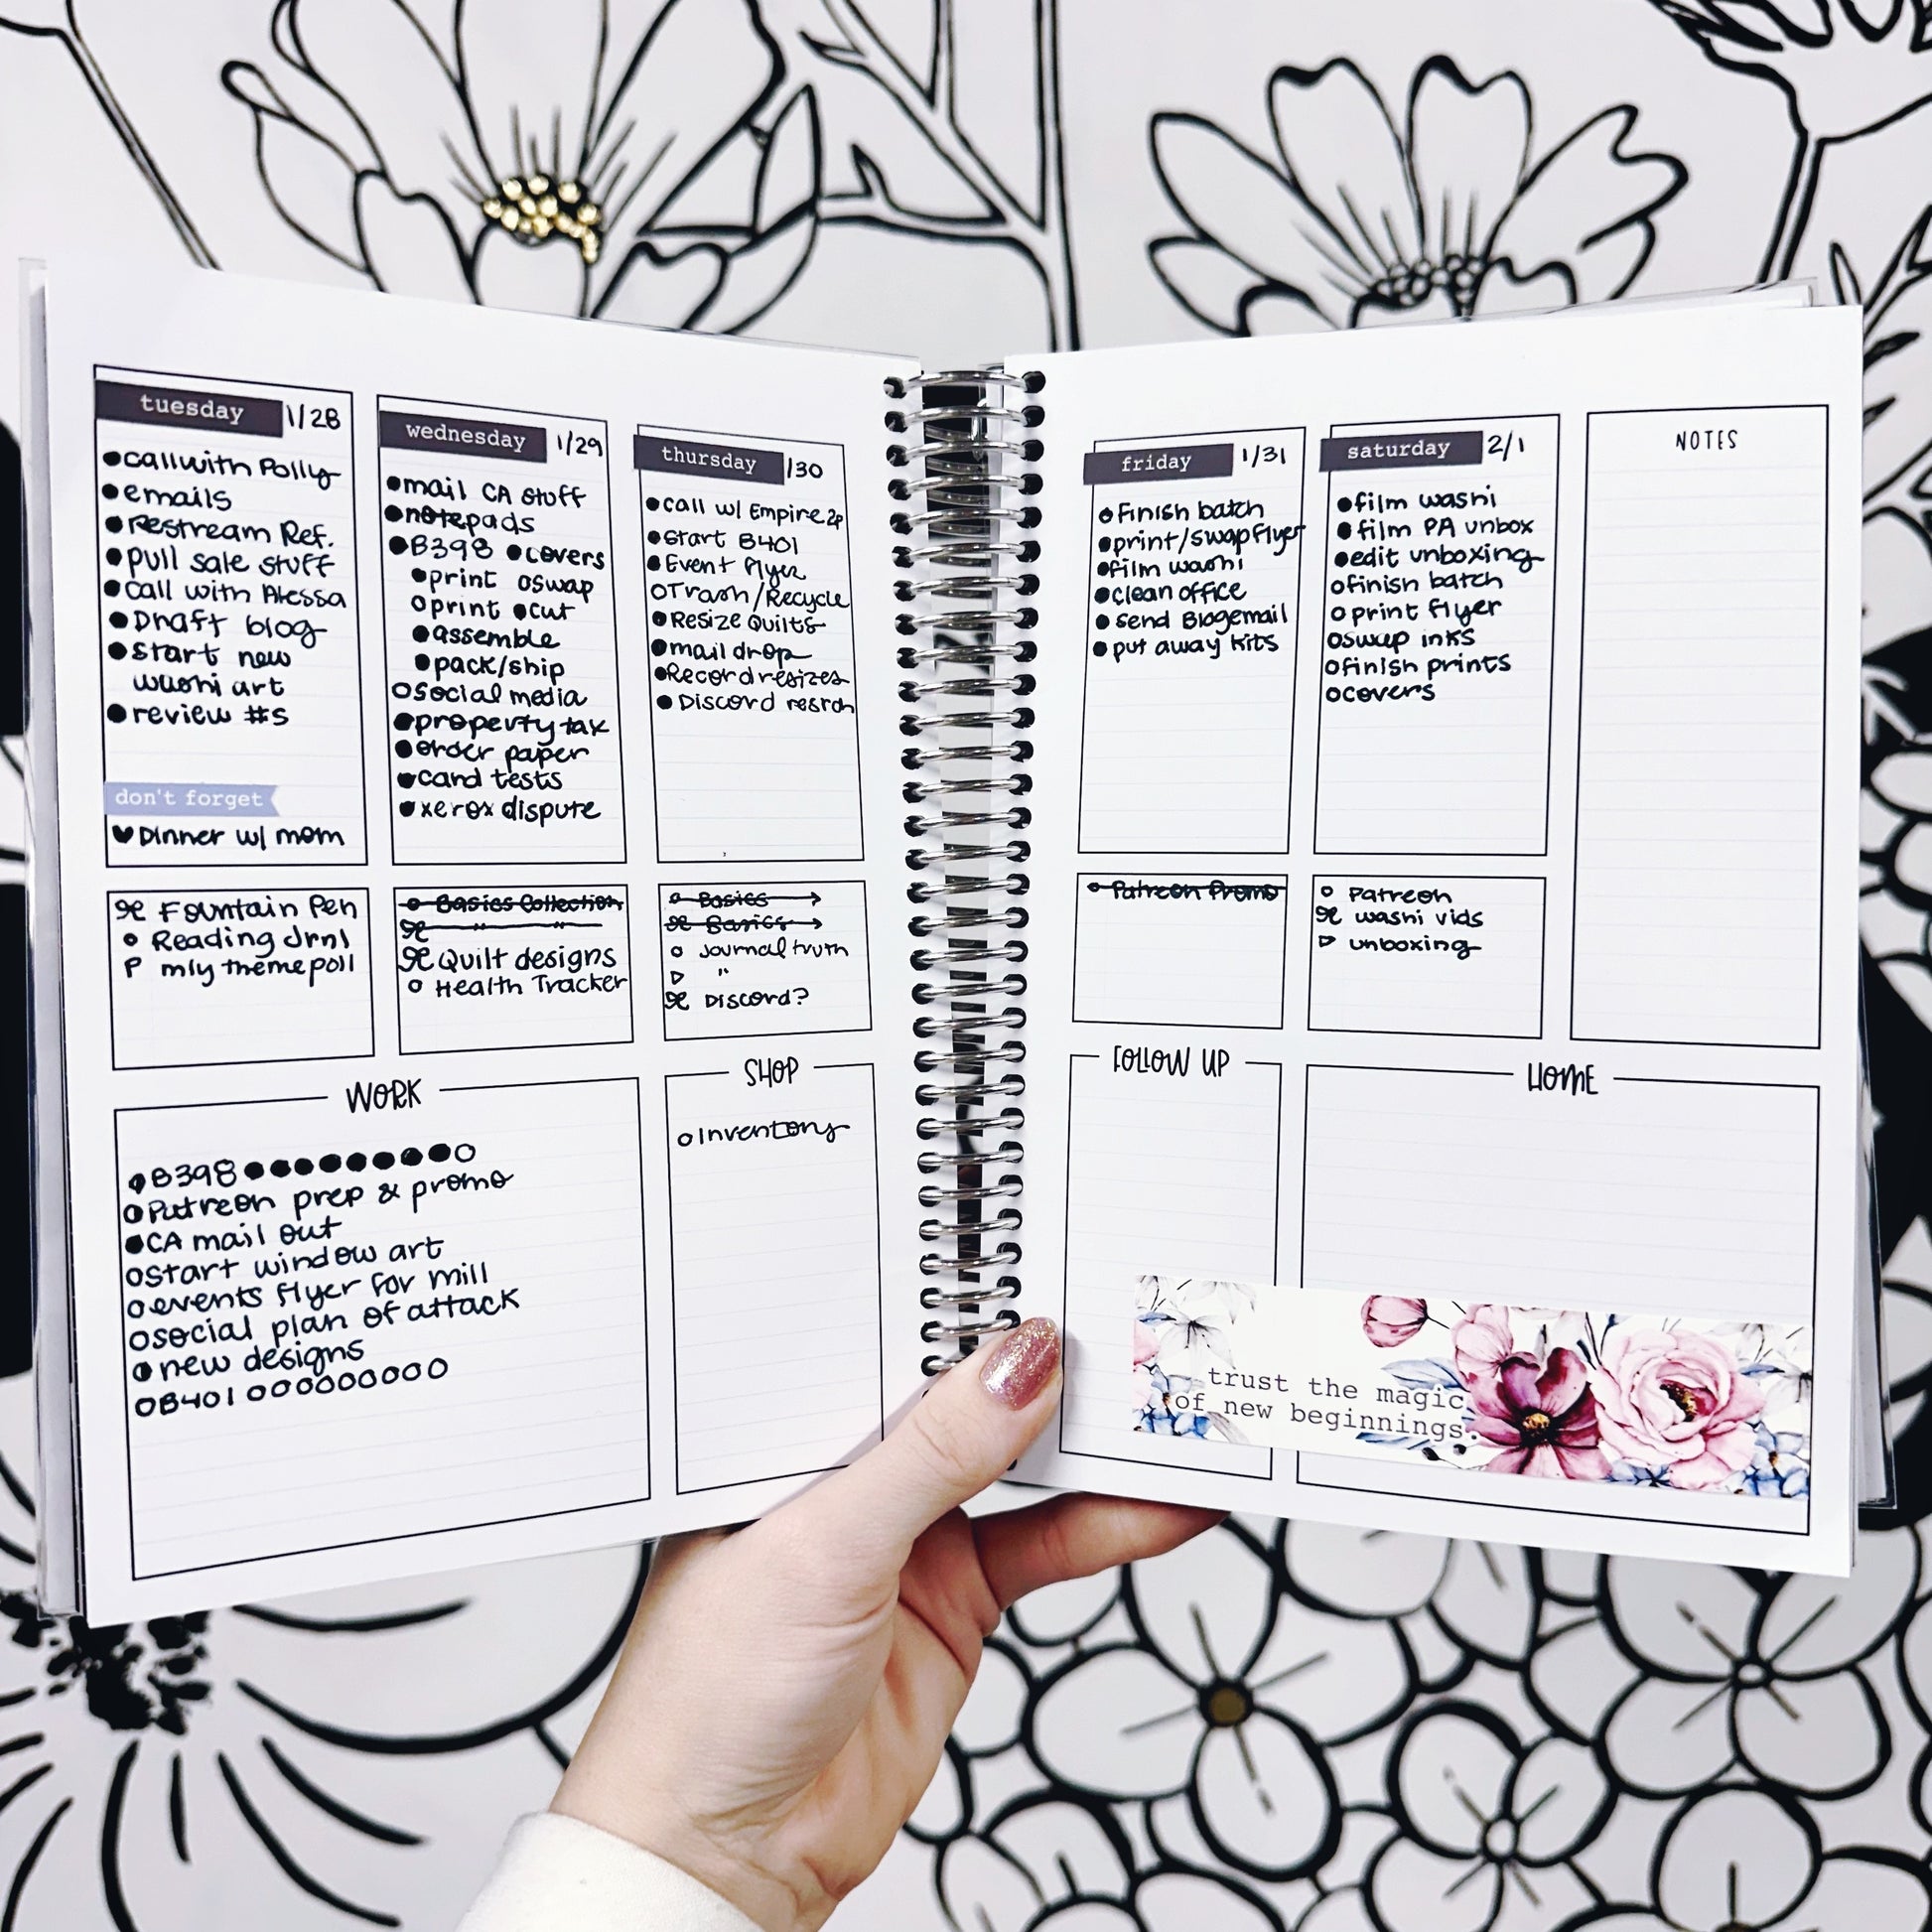 tuesday 1/28
call with Polly
emails
Restream Ref.
pull sale stuff
call with Alessa
Draft blog
start new
washi art
review #s
don't forget
Dinner w/ mom
Fountain Pen
Reading Jrnl
P mly theme poll
wednesday 1/29
mail CA stuff
notepads
B398 covers
print swap
print cut
assemble
pack/ship
social media
property tax
order paper
card tests
xerox dispute
Basics Collection
" "
Quilt designs
Health Tracker
thursday 1/30
call w/ Empire 2p
Start B401
Event Flyer
Trash/Recycle
Resize Quilts
mail drop
Record resizes
Discord resrch
Basics →
Basics →
Journal truth
"
Discord?
WORK
B398
Patreon prep & promo
CA mail out
start window art
events flyer for mill
social plan of attack
new designs
B401
SHOP
Inventory
friday 1/31
Finish batch
print/swap flyer
film washi
clean office
send Blogemail
put away kits
Patreon Promo
saturday 2/1
film washi
film PA unbox
edit unboxing
finish batch
print flyer
swap inks
finish prints
covers
Patreon
washi vids
unboxing
NOTES
FOLLOW UP
HOME
trust the magic
of new beginnings.